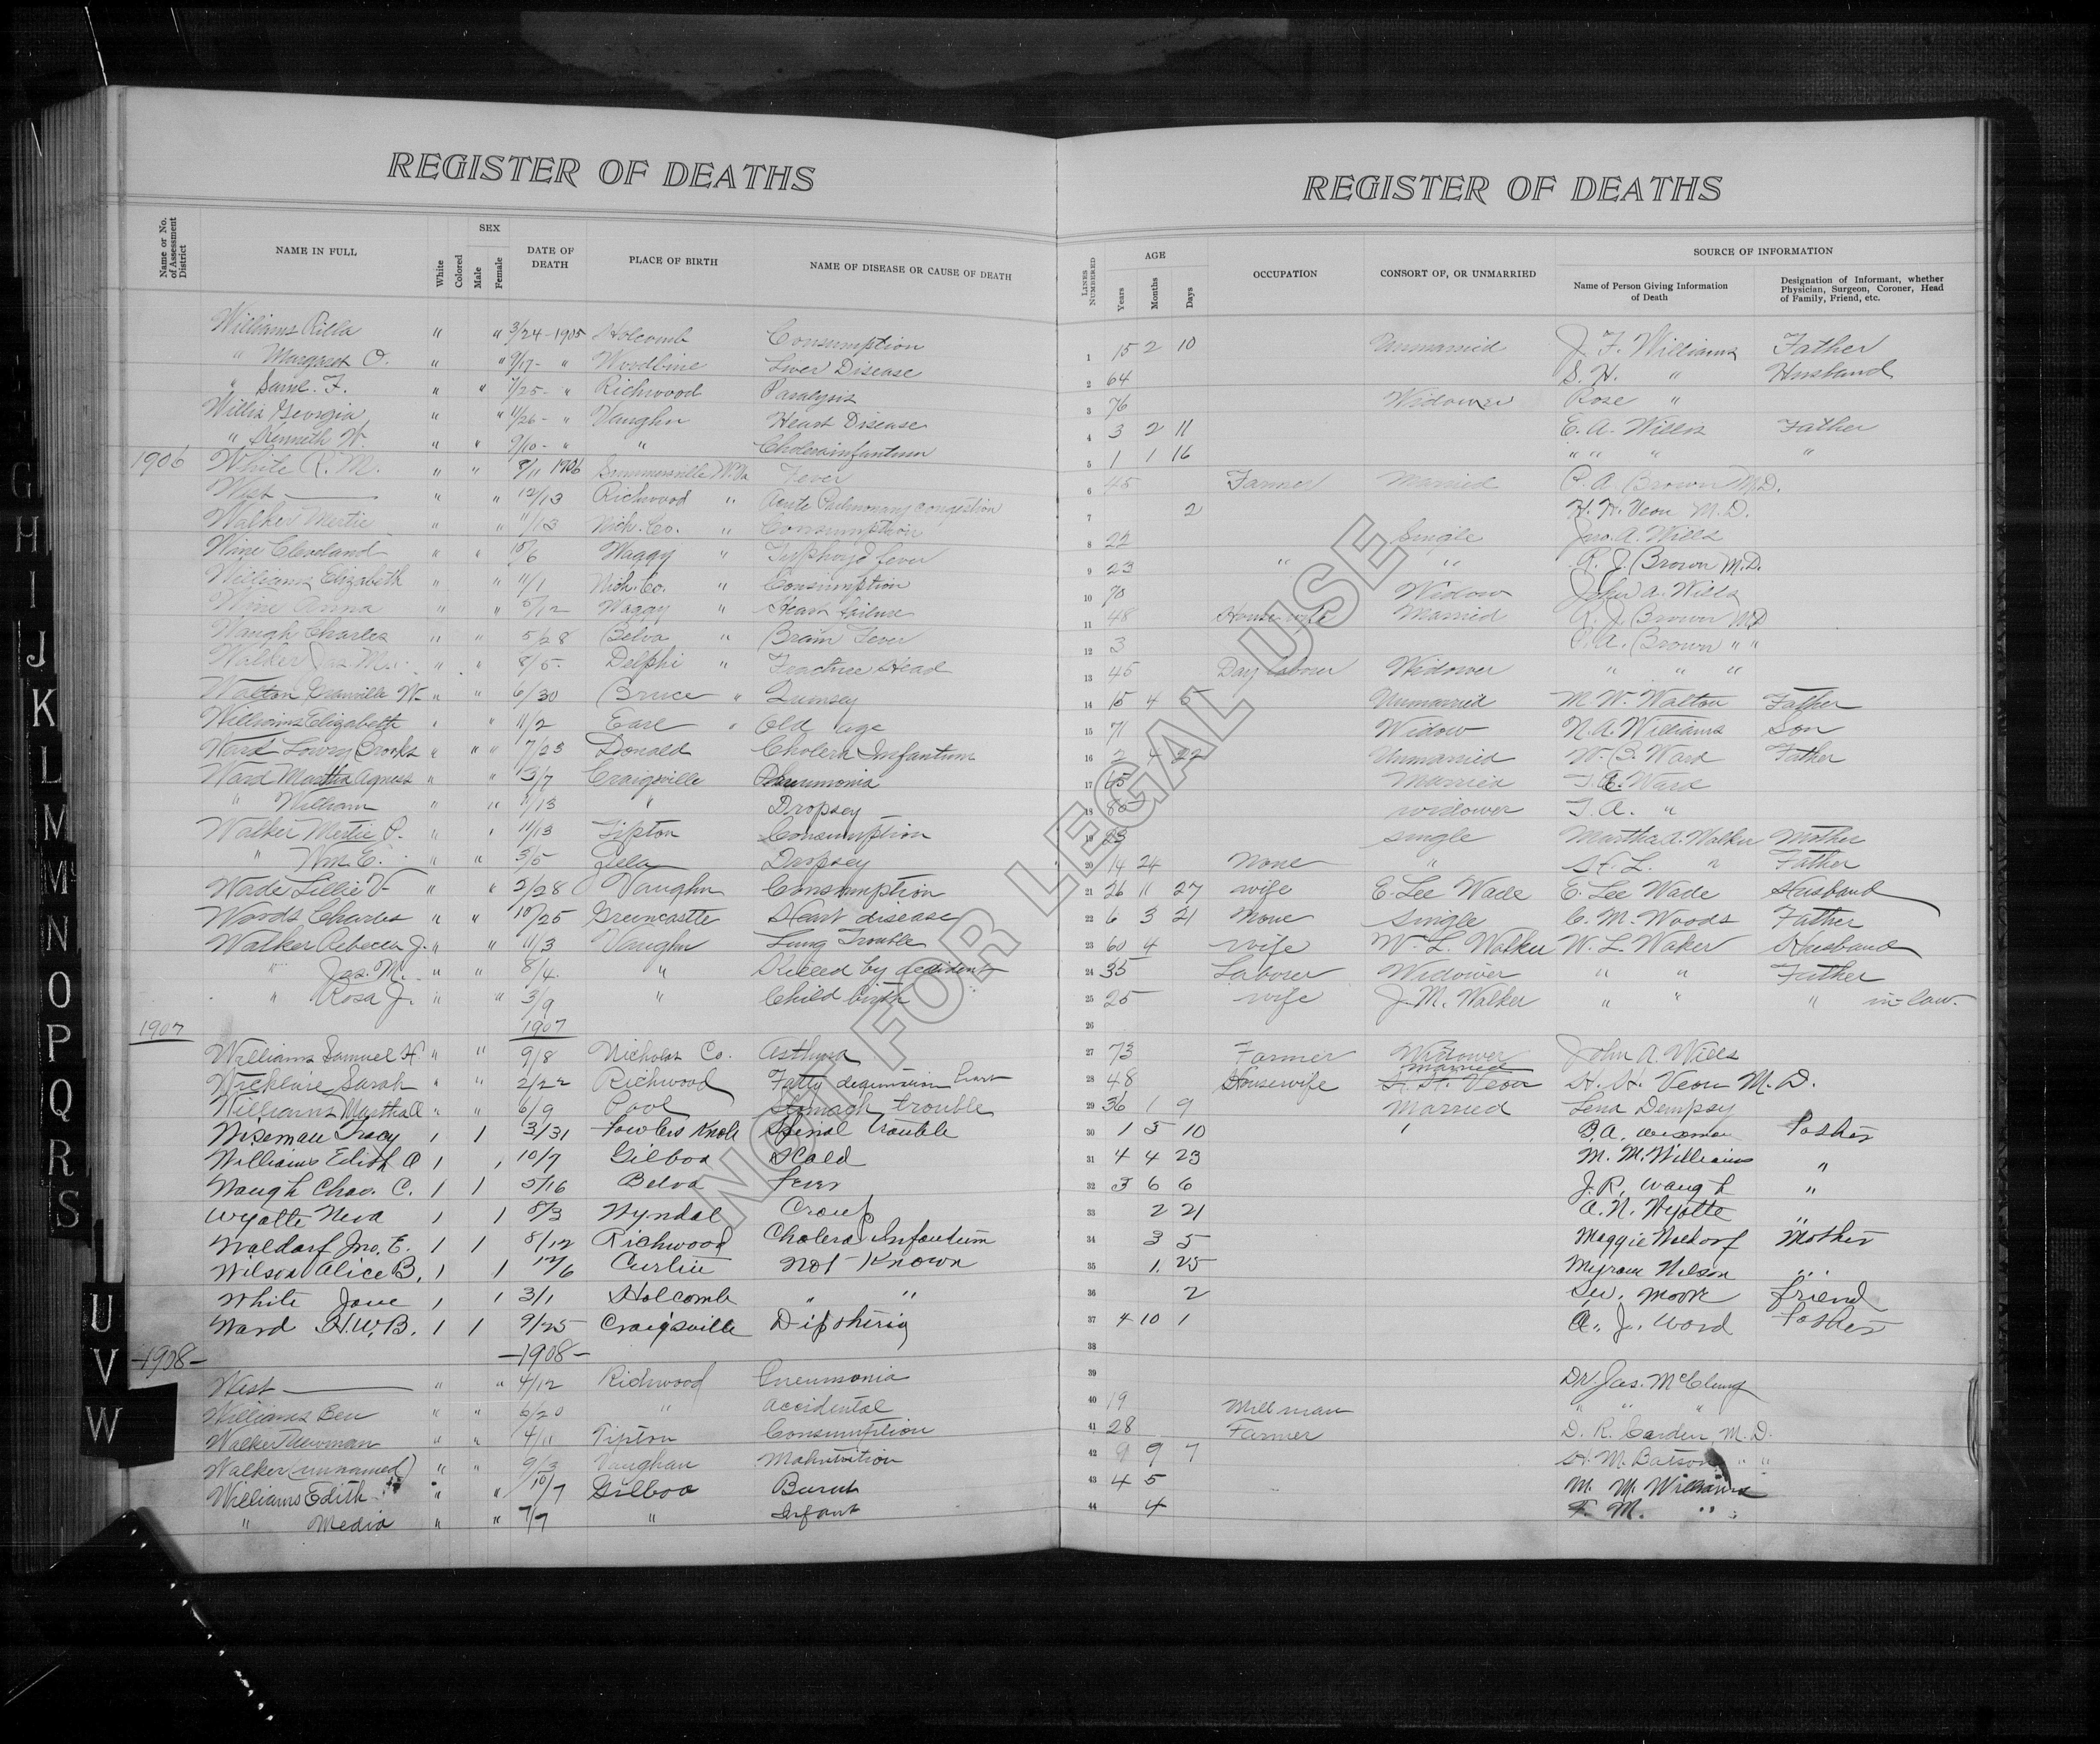 REGISTER OF DEATHS
Name or No. of Assessment District
NAME IN FULL
White
Colored
SEX
Male
Female
DATE OF DEATH
PLACE OF BIRTH
NAME OF DISEASE OR CAUSE OF DEATH
Williams Rilla " " 3/24-1905 Holcomb Consumption
" Margaret O. " " 9/17- " Woodbine Liver Disease
" Saml. F. " " 7/25- " Richwood Paralysis
Willis Georgia " 11/26- " Vaughn Heart Disease
" Kenneth W. " " 9/10- " " Cholerainfantum
1906 White R. M. " " 8/11 1906 Summersville W. Va Fever
West " " 12/13 Richwood " Acute Pulmonary congestion
Walker Mertie " " 11/13 Nich. Co. " Consumption
Wine Cleveland " " 10/6 Waggy " Typhoyd fever
Williams Elizabeth " " 11/1 Nich. Co. " Consumption
Wine Anna " " 5/12 Waggy " Heart failure
Waugh Charles " " 5/28 Belva " Brain Fever
Walker Jas. M. " " 8/5- Delphi " Fracture Head
Walton Granville W- " " 6/30 Bruce "
Williams Elizabeth " " 11/2 Earl " Old age
Ward Lowry Crooks " " " 7/23 Donald Cholera Infantum
Ward Martha Agness " " 3/7 Craigsville Pneumonia
" William " " 11/13 " Dropsey
Walker Mertie P. " " 11/13 Tipton Consumption
" Wm. E. " " 3/5 Zela Dropsey
Wade Lillie V- " " 2/28 Vaughn Consumption
Woods Charles " " 10/25 Greencastle Heart disease
Walker Rebecca J. " " 11/3 Vaughn Lung Trouble
" Jas. M. " " 8/4 " Killed by accident
" Rosa J. " " 3/9 " Child birth
1907 1907
Williams Samuel H " " 9/8 Nicholas Co. Asthma
Sarah " " 2/22 Richwood Fatty Heart
Williams Martha A " " 6/9 Pool Stomach trouble
Wiseman Tracy 1 1 3/31 Fowlers Knob Spinal Trouble
Williams Edith A 1 1 10/7 Gilboa Scald
Waugh Chas. C. 1 1 5/16 Belva Fever
Wyatte Neva 1 1 8/3 Wyndal Croup
Waldorf Jno. E. 1 1 8/12 Richwood Cholera Infantum
Wilson Alice B. 1 1 12/6 Curtin not Known
White Jane 1 1 3/1 Holcomb " "
Ward H.W.B. 1 1 9/25 Craigsville Diptheria
-1908- -1908-
West " " 4/12 Richwood Pneumonia
Williams Ben " " 6/20 " Accidental
Walker Newman " " 4/11 Tipton Consumption
Walker (unnamed) " " 9/3 Vaughan Malnutrition
Williams Edith " " 10/7 Gilboa Burnt
" Media " " 7/7 " Infant
REGISTER OF DEATHS
LINES NUMBERED
AGE
Years
Months
Days
OCCUPATION
CONSORT OF, OR UNMARRIED
SOURCE OF INFORMATION
Name of Person Giving Information of Death
Designation of Informant, whether Physician, Surgeon, Coroner, Head of Family, Friend, etc.
1 15 2 10 Unmarried J. F. Williams Father
2 64 S. H. " Husband
3 76 Widower Rose "
4 3 2 11 E. A. Willis Father
5 1 1 16 " " " "
6 45 Farmer Married P. A. Brown M.D.
7 2 H. H. Veon M.D.
8 22 Single Jno. A. Wills
9 23 " " R. J. Brown M.D.
10 70 Widow John A. Wills
11 48 House wife Married R. J. Brown MD
12 3 P. A. Brown " "
13 45 Day labour Widower " " "
14 15 4 5 Unmarried M. W. Walton Father
15 71 Widow N. A. Williams Son
16 2 4 22 Unmarried W. B. Ward Father
17 65 Married Ward
18 80 widower T. A. "
19 23 single Martha A. Walker Mother
20 14 24 None " H. L. " Father
21 26 11 27 wife E. Lee Wade E. Lee Wade Husband
22 6 3 21 None single C. M. Woods Father
23 60 4 wife W. L. Walker W. L. Waker Husband
24 35 Laborer Widower " " Father
25 25 wife J. M. Walker " " " in-law.
26
27 73 Farmer Widower John A. Wills
28 48 Housewife married H. H. Veon H. H. Veon M. D.
29 36 1 9 Married Lena Dempsy
30 1 5 10 ' wisman Father
31 4 4 23 M. M. Williams "
32 3 6 6 J. R. Waugh "
33 2 21 A. N. Wyatte "
34 3 5 Maggie Waldorf Mother
35 1 25 Myram Wilson "
36 2 Moore friend
37 4 10 1 A. J. Ward Father
38
39 Dr. Jas. McClung
40 19 Mill man " " "
41 28 Farmer D. R. Carden, M. D.
42 9 7 H. M. Batson " "
43 4 5 M. M. Williams
44 4 F. M. "
NOT FOR LEGAL USE
G
H
I
J
K
L
M
Mc
N
O
P
Q
R
S
U
V
W